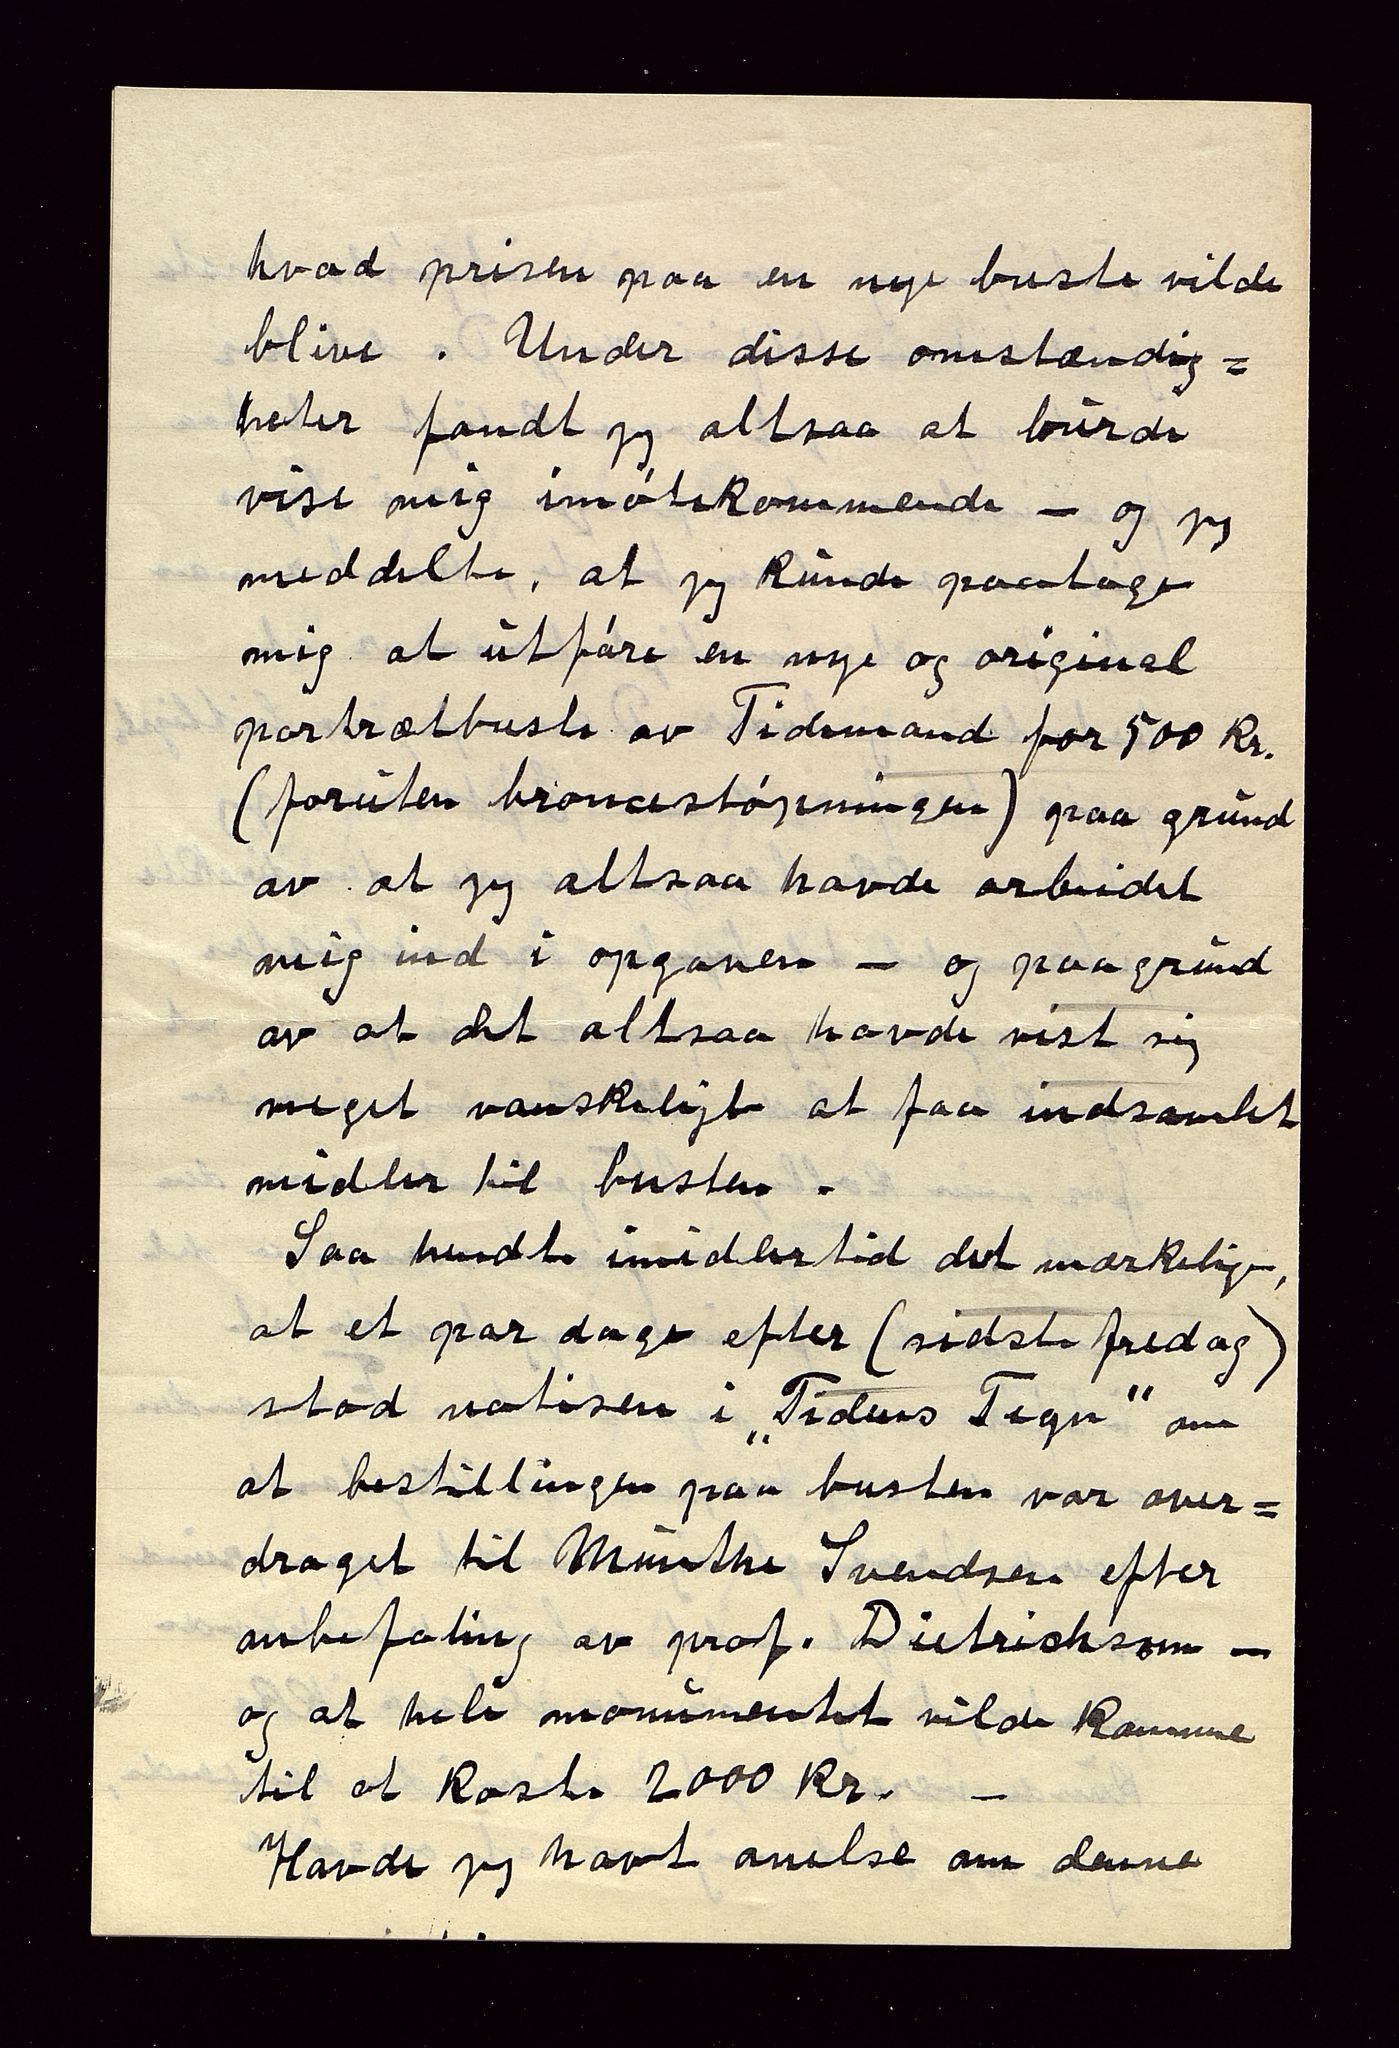 hvad prisen paa en nye buste vilde
blive. Under disse omstændig=
heter fandt jeg altsaa at burde
vise mig imøtekommende — og jeg
meddelte, at jeg kunde paatage
mig at utføre en nye og original
portrætbuste av Tidemand for 500 kr.
(foruten broncestøpningen) paa grund
av at jeg altsaa havde arbeidet
mig ind i opgaven — og paa grund
av at det altsaa havde vist sig
meget vanskeligt at faa indsamlet
midler til busten.
Saa hendte imidlertid det mærkelige,
at et par dage efter (sidste fredag)
stod notisen i „Tidens Tegn" om
at bestillingen paa busten var over=
draget til Munthe Svendsen efter
anbefaling av prof. Dietrichson —
og at hele monumentet vilde komme
til at koste 2000 kr. —
Havde jeg havt anelse om denne